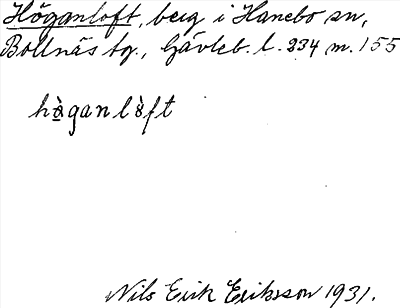 Höganloft, berg i Hanebo sn,
Bollnäs tg., Gävleb. l. 234 m. 155
hə̀ganlə̀ft
Nils Erik Eriksson 1931.